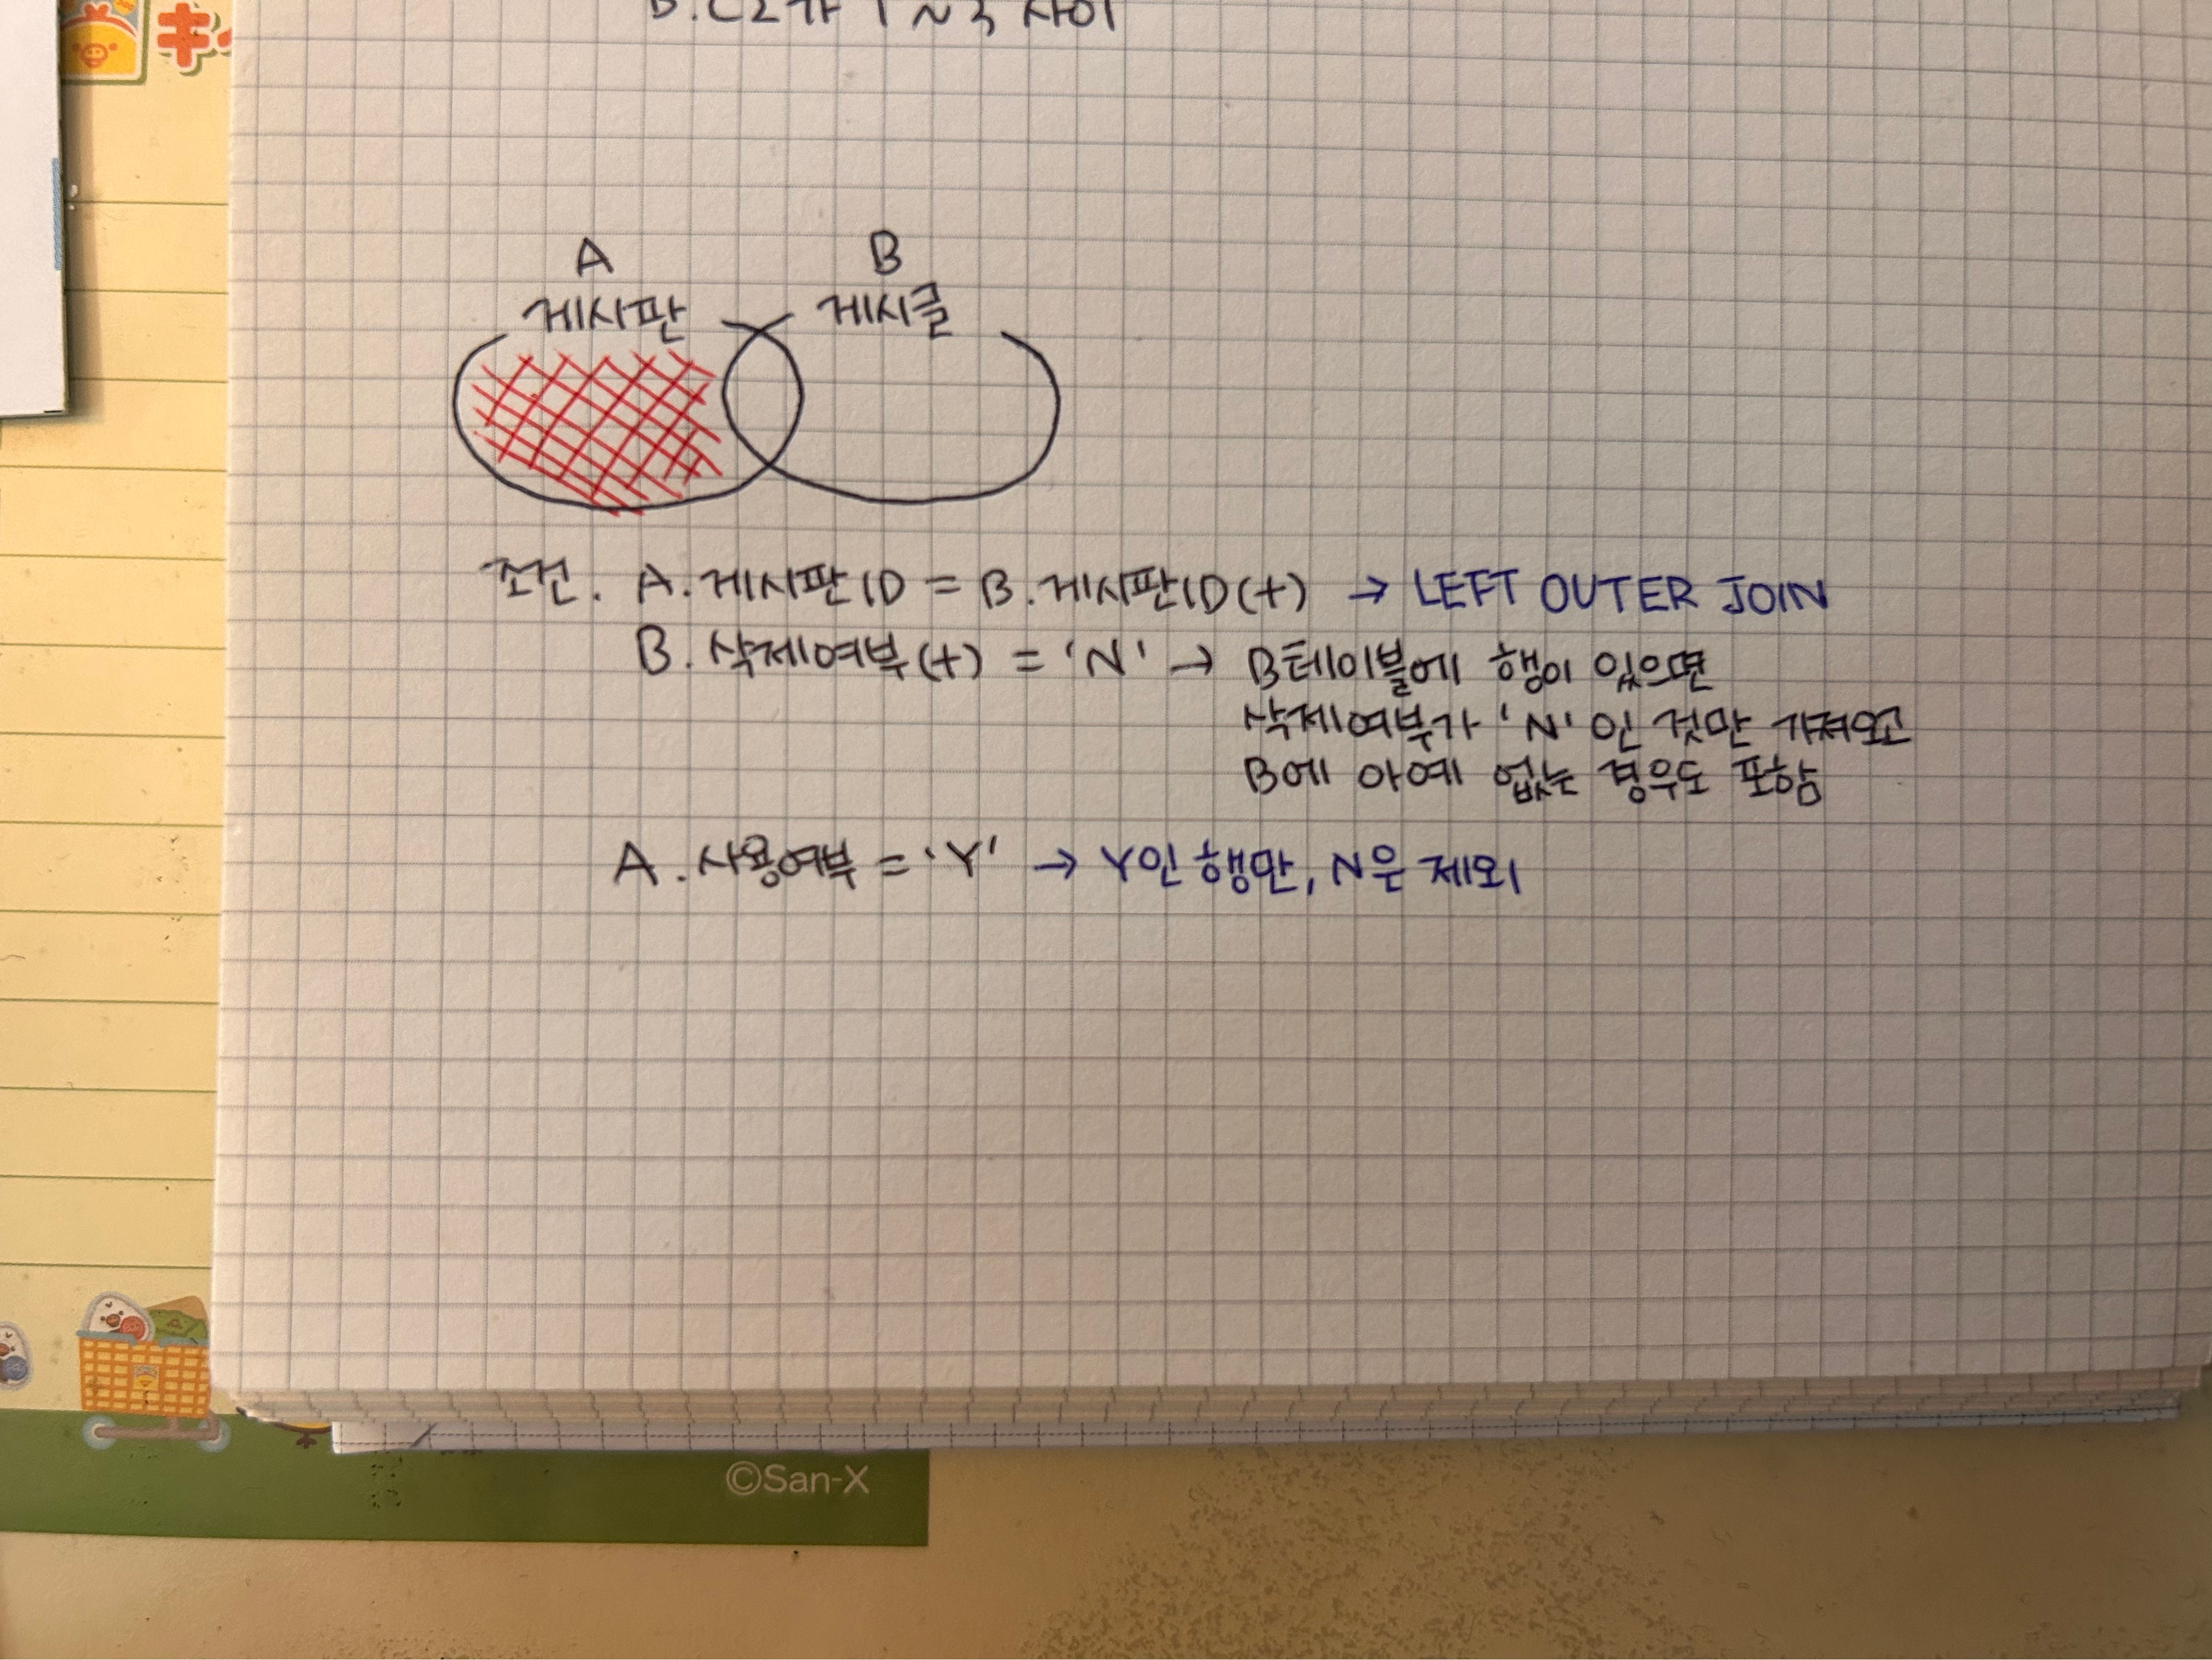 A
B
게시판
게시글
조건. A.게시판ID = B.게시판ID(+) → LEFT OUTER JOIN
B.삭제여부(+) = 'N' → B테이블에 행이 있으면
삭제여부가 'N'인 것만 가져오고
B에 아예 없는 경우도 포함
A.사용여부 = 'Y' → Y인 행만, N은 제외
©San-X